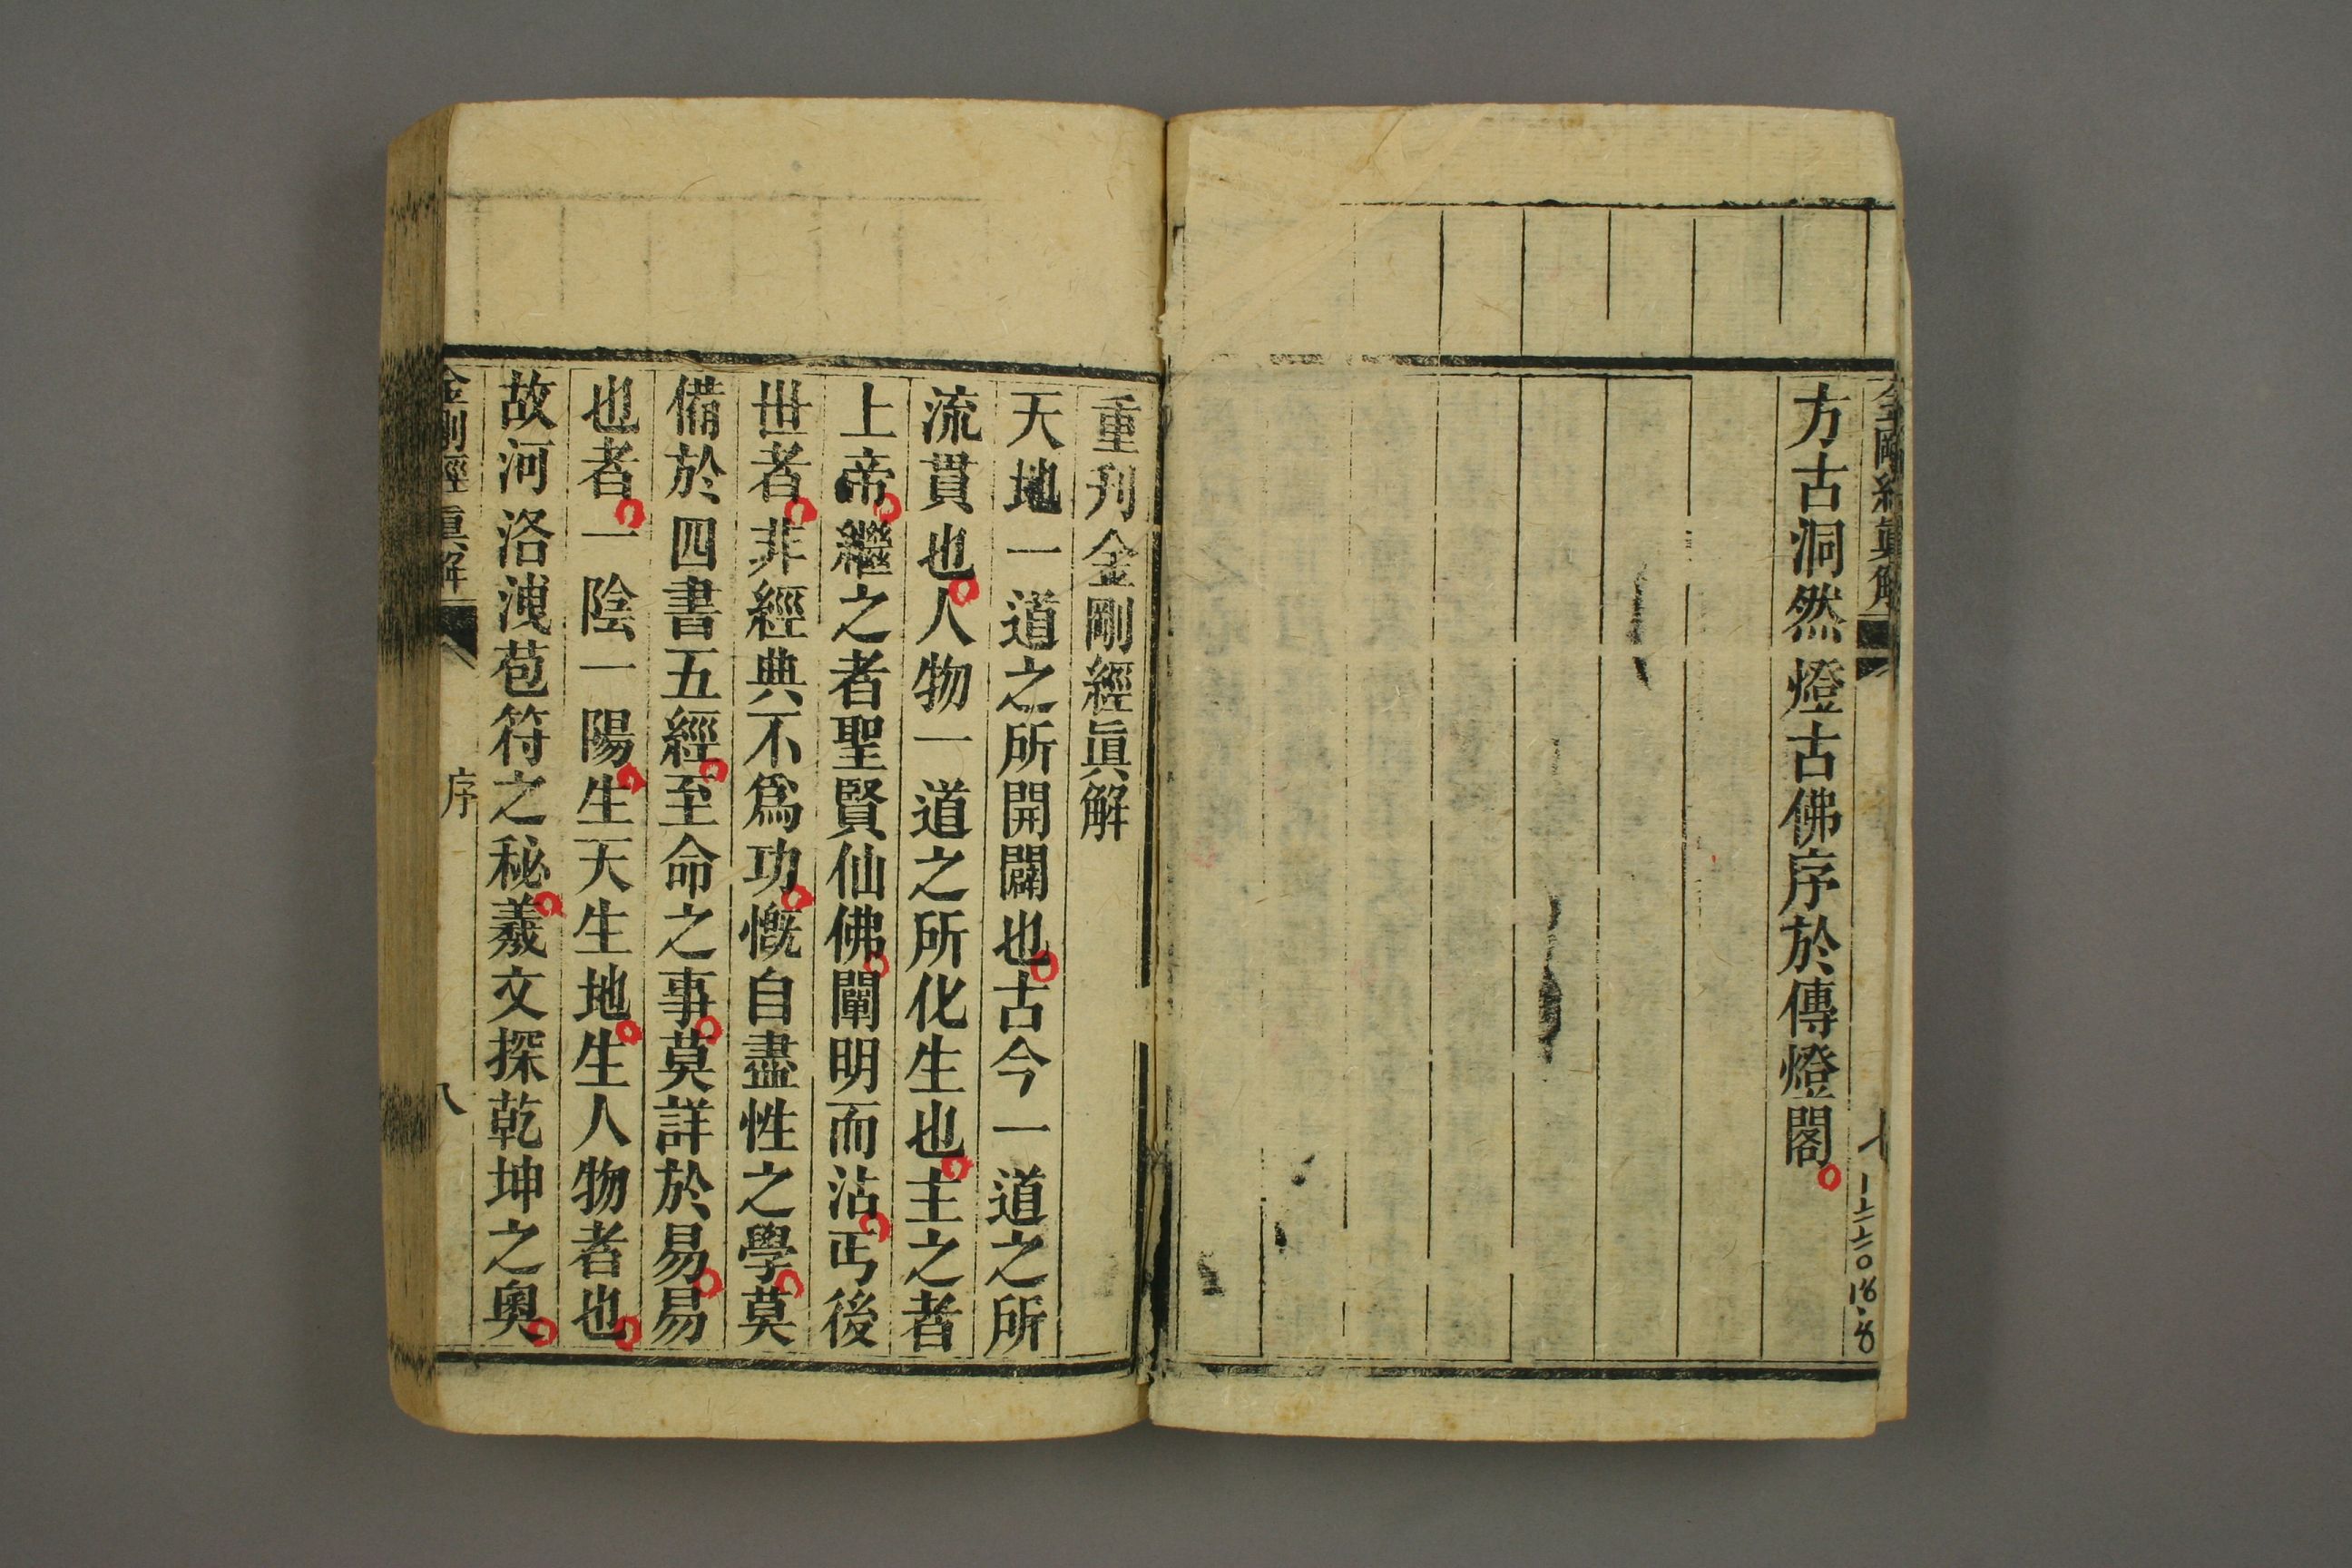 金剛經眞解
七
方古洞然燈古佛序於傳燈閣。
重刋金剛經眞解
天地一道之所開闢也。古今一道之所
流貫也。人物一道之所化生也。主之者
上帝。繼之者聖賢仙佛。闡明而沾。丐後
世者。非經典不爲功。慨自盡性之學。莫
備於四書五經。至命之事。莫詳於易。易
也者。一陰一陽。生天生地。生人物者也。
故河洛洩苞符之秘。羲文探乾坤之奥。
金剛經眞解
序
八